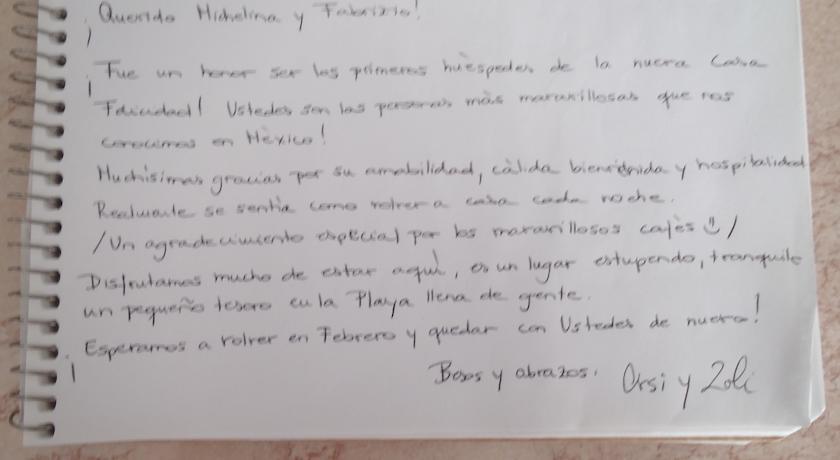 ¡Querido Michelina y Fabrizio!
¡Fue un honor ser los primeros huéspedes de la nueva Casa
Felicidad! Ustedes son las personas más maravillosas que nos
conocimos en México!
Muchísimas gracias por su amabilidad, cálida bienvenida y hospitalidad
Realmente se sentía como volver a casa cada noche.
/Un agradecimiento especial por los maravillosos cafés ☺/
Disfrutamos mucho de estar aquí, es un lugar estupendo, tranquilo
un pequeño tesoro en la Playa llena de gente.
¡Esperamos a volver en Febrero y quedar con Ustedes de nuevo!
Besos y abrazos. Orsi y Zoli